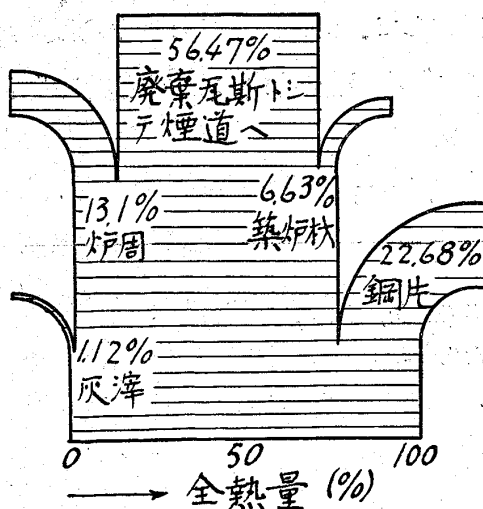 56.47%
廃棄瓦斯トシ
テ煙道へ
13.1%
炉周
6.63%
築炉材
22.68%
鋼片
1.12%
灰滓
0 50 100
全熱量 (%)